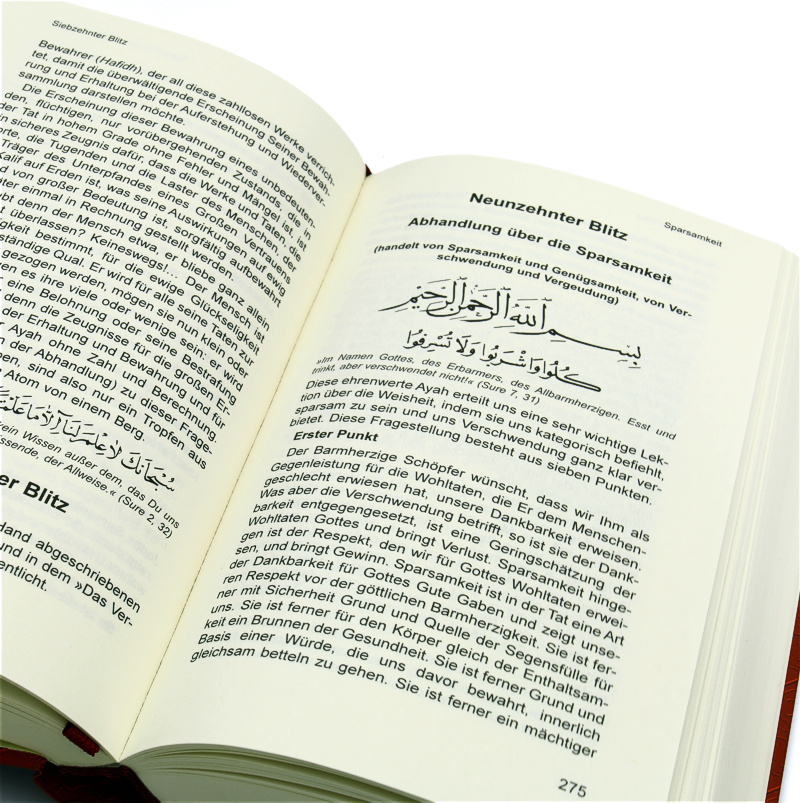 Siebzehnter Blitz
Bewahrer (Hafidh), der all diese zahllosen Werke verrich-
tet, damit die überwältigende Erscheinung Seiner Bewah-
rung und Erhaltung bei der Auferstehung und Wiederver-
sammlung darstellen möchte.
Die Erscheinung dieser Bewahrung eines unbedeuten-
den, flüchtigen, nur vorübergehenden Zustands, die in
der Tat in hohem Grade ohne Fehler und Mängel ist, ist
ein sicheres Zeugnis dafür, dass die Werke und Taten, die
orte, die Tugenden und die Laster des Menschen, der
Träger des Unterpfandes eines Großen Vertrauens
Kalif auf Erden ist, was seine Auswirkungen auf ewig
d von großer Bedeutung ist, sorgfältig aufbewahrt
äter einmal in Rechnung gestellt werden.
bt denn der Mensch etwa, er bliebe ganz allein
t überlassen? Keineswegs!... Der Mensch ist
gkeit bestimmt, für die ewige Glückseligkeit
ständige Qual. Er wird für alle seine Taten zur
gezogen werden, mögen sie nun klein oder
en es ihre viele oder wenige sein: er wird
eine Belohnung oder seine Bestrafung
denn die Zeugnisse für die großen Er-
der Erhaltung und Bewahrung und für
Ayah ohne Zahl und Berechnung.
der Abhandlung) zu dieser Frage-
en, sind also nur ein Tropfen aus
Atom von einem Berg.
سُبْحَانَكَ لَا عِلْمَ لَنَا إِلَّا مَا عَلَّمْتَنَا
kein Wissen außer dem, das Du uns
issende, der Allweise.« (Sure 2, 32)
er Blitz
Hand abgeschriebenen
und in dem »Das Ver-
entlicht.
Sparsamkeit
Neunzehnter Blitz
Abhandlung über die Sparsamkeit
(handelt von Sparsamkeit und Genügsamkeit, von Ver-
schwendung und Vergeudung)
بِسْمِ اللَّهِ الرَّحْمَنِ الرَّحِيمِ
كُلُوا وَاشْرَبُوا وَلَا تُسْرِفُوا
»Im Namen Gottes, des Erbarmers, des Allbarmherzigen. Esst und
trinkt, aber verschwendet nicht!« (Sure 7, 31)
Diese ehrenwerte Ayah erteilt uns eine sehr wichtige Lek-
tion über die Weisheit, indem sie uns kategorisch befiehlt,
sparsam zu sein und uns Verschwendung ganz klar ver-
bietet. Diese Fragestellung besteht aus sieben Punkten.
Erster Punkt
Der Barmherzige Schöpfer wünscht, dass wir Ihm als
Gegenleistung für die Wohltaten, die Er dem Menschen-
geschlecht erwiesen hat, unsere Dankbarkeit erweisen.
Was aber die Verschwendung betrifft, so ist sie der Dank-
barkeit entgegengesetzt, ist eine Geringschätzung der
Wohltaten Gottes und bringt Verlust. Sparsamkeit hinge-
gen ist der Respekt, den wir für Gottes Wohltaten erwei-
sen, und bringt Gewinn. Sparsamkeit ist in der Tat eine Art
der Dankbarkeit für Gottes Gute Gaben und zeigt unse-
ren Respekt vor der göttlichen Barmherzigkeit. Sie ist fer-
ner mit Sicherheit Grund und Quelle der Segensfülle für
uns. Sie ist ferner für den Körper gleich der Enthaltsam-
keit ein Brunnen der Gesundheit. Sie ist ferner Grund und
Basis einer Würde, die uns davor bewahrt, innerlich
gleichsam betteln zu gehen. Sie ist ferner ein mächtiger
275